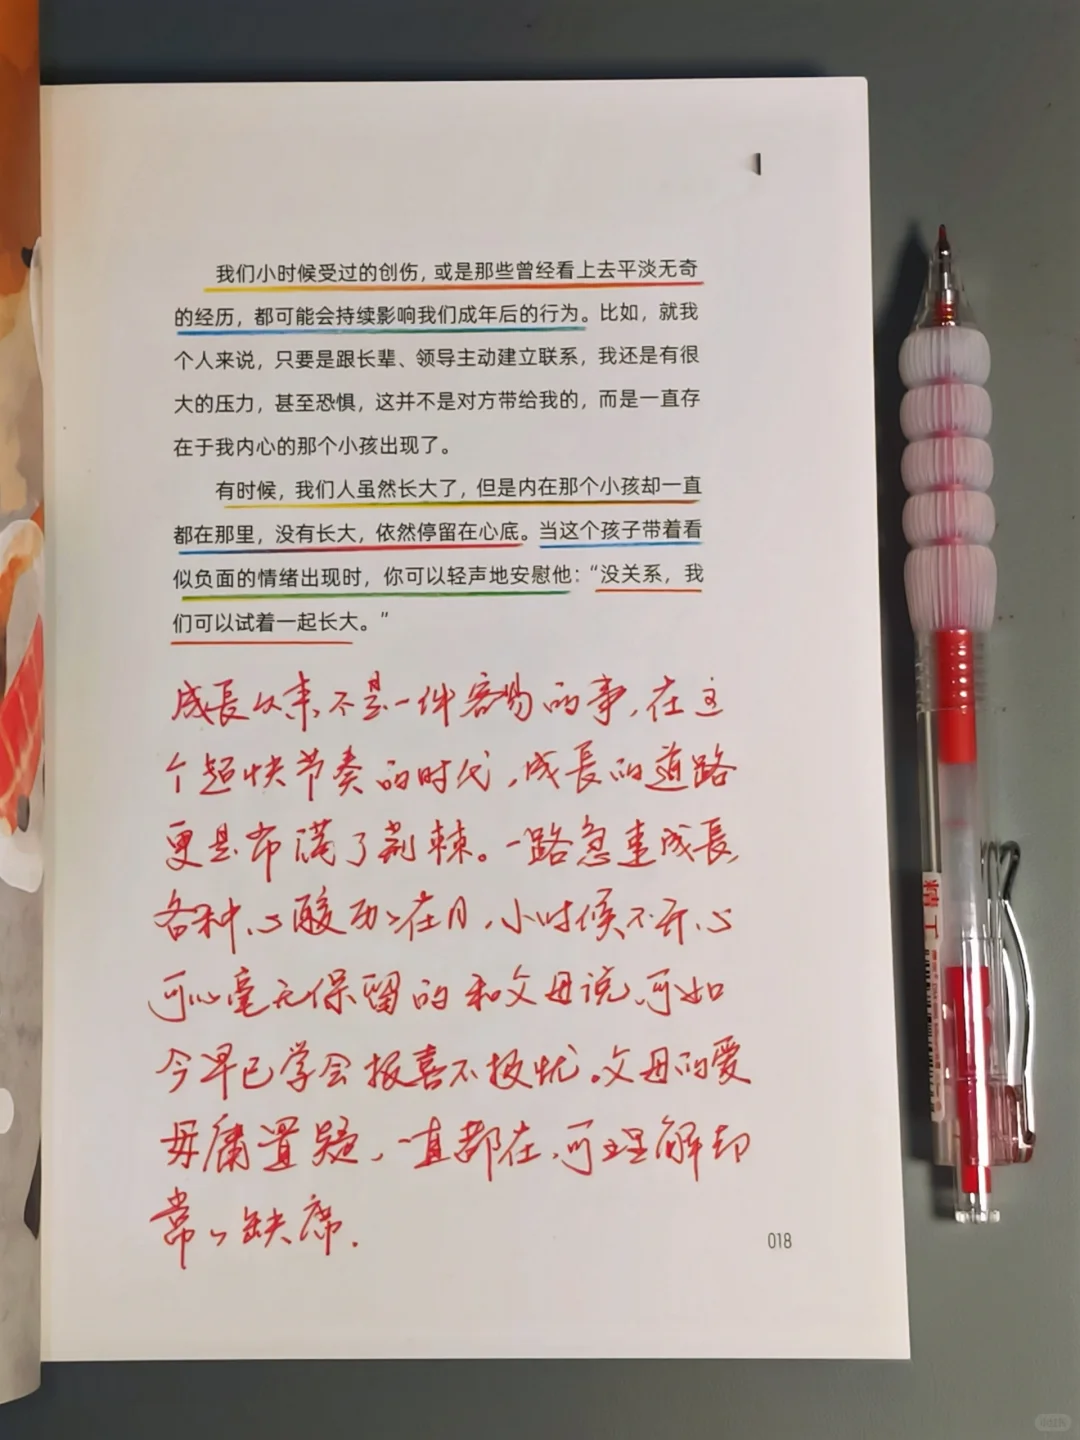 我们小时候受过的创伤，或是那些曾经看上去平淡无奇
的经历，都可能会持续影响我们成年后的行为。比如，就我
个人来说，只要是跟长辈、领导主动建立联系，我还是有很
大的压力，甚至恐惧，这并不是对方带给我的，而是一直存
在于我内心的那个小孩出现了。
有时候，我们人虽然长大了，但是内在那个小孩却一直
都在那里，没有长大，依然停留在心底。当这个孩子带着看
似负面的情绪出现时，你可以轻声地安慰他：“没关系，我
们可以试着一起长大。”
成長从来不是一件容易的事，在这
个超快节奏的时代，成長的道路
更是布满了荆棘。一路急速成長，
各种心酸历历在目，小时候不开心
可以毫无保留的和父母说，可如
今早已学会报喜不报忧。父母的爱
毋庸置疑，一直都在，可理解却
常常缺席.
018
精工